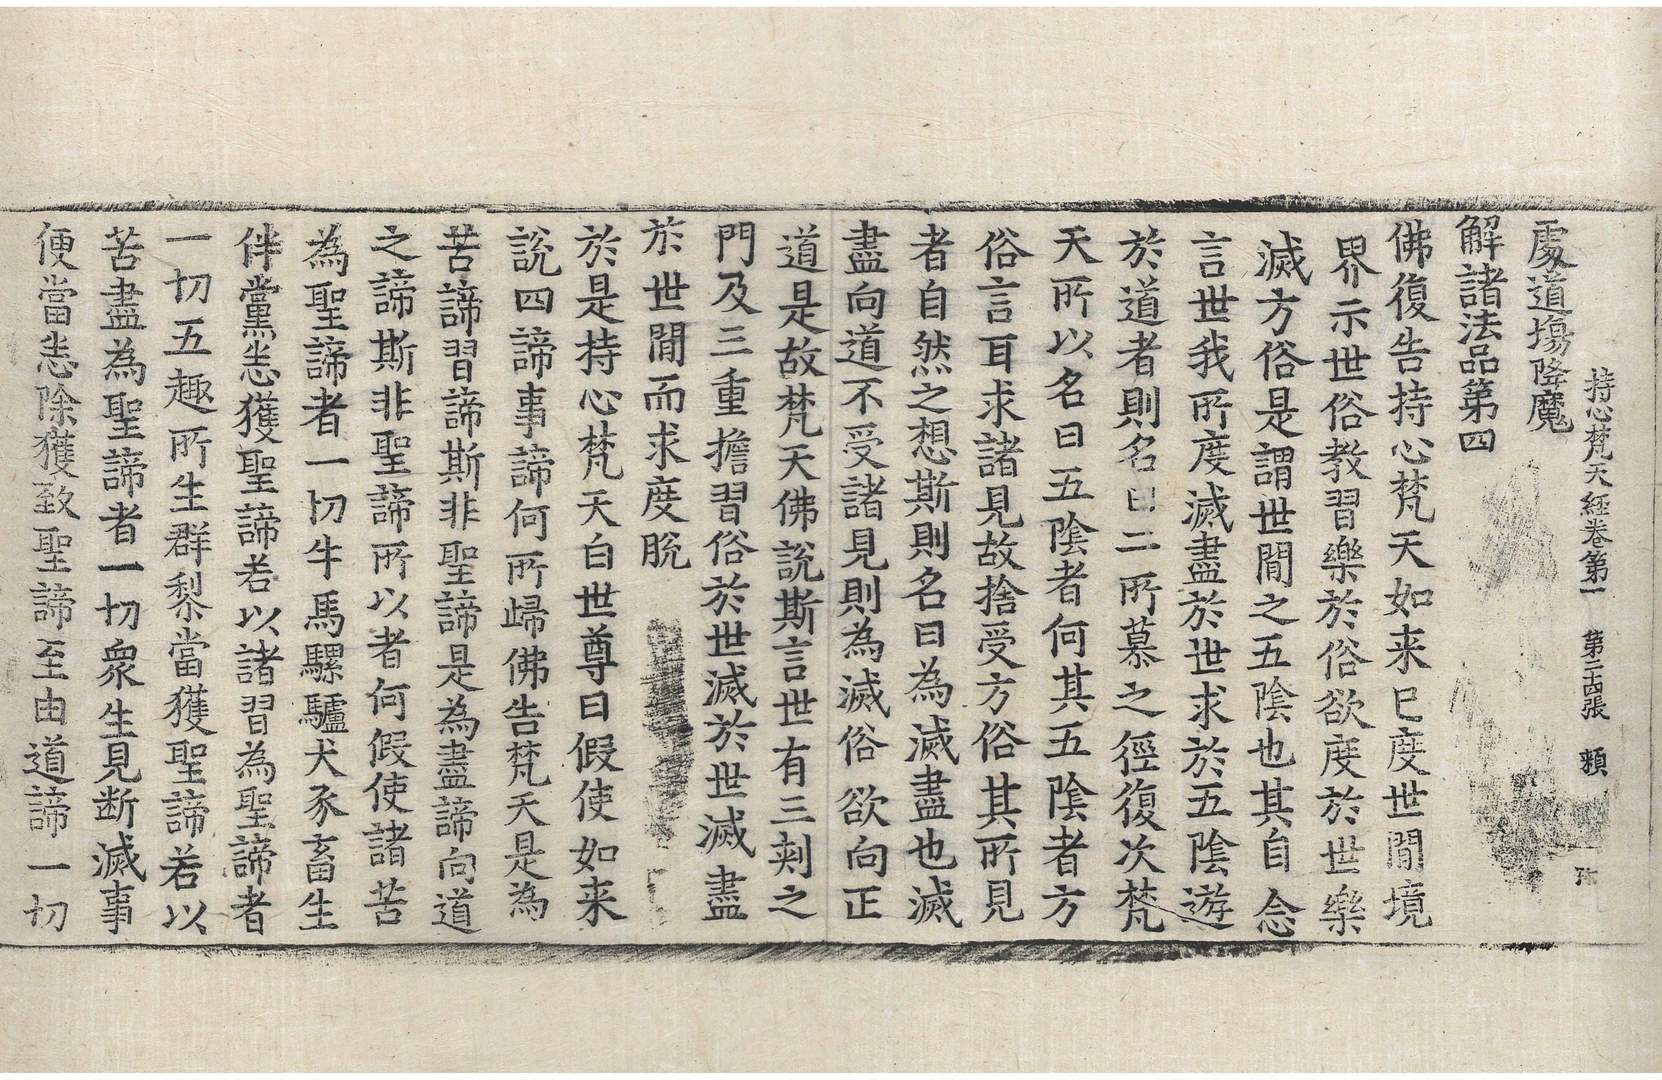 持心梵天經卷第一 第二十四張 賴
處道場降魔
解諸法品第四
佛復告持心梵天如来已度世閒境
界示世俗教習樂於俗欲度於世樂
滅方俗是謂世閒之五陰也其自念
言世我所度滅盡於世求於五陰遊
於道者則名曰二所慕之徑復次梵
天所以名曰五陰者何其五陰者方
俗言耳求諸見故捨受方俗其所見
者自然之想斯則名曰為滅盡也滅
盡向道不受諸見則為滅俗欲向正
道是故梵天佛說斯言世有三刺之
門及三重擔習俗於世滅於世滅盡
於世閒而求度脫
於是持心梵天白世尊曰假使如来
說四諦事諦何所歸佛告梵天是為
苦諦習諦斯非聖諦是為盡諦向道
之諦斯非聖諦所以者何假使諸苦
為聖諦者一切牛馬騾驢犬豕畜生
伴黨悉獲聖諦若以諸習為聖諦者
一切五趣所生群黎當獲聖諦若以
苦盡為聖諦者一切衆生見断滅事
便當悉除獲致聖諦至由道諦一切